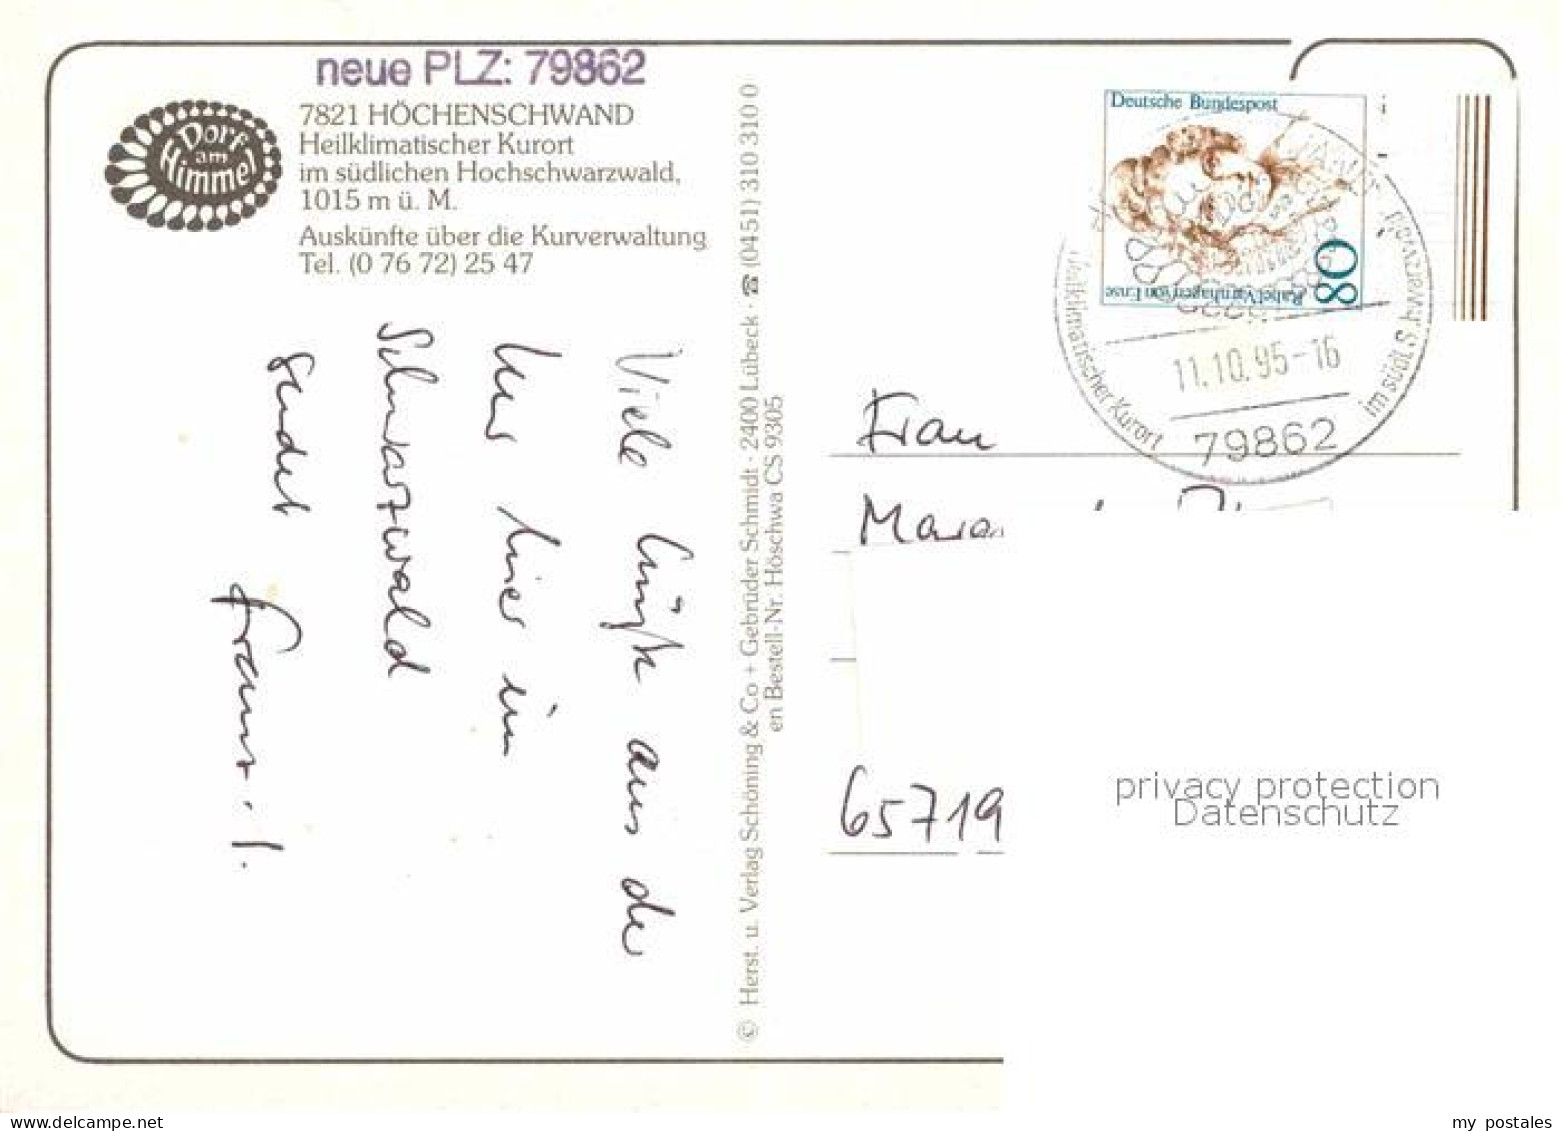 neue PLZ: 79862
Dorf
am
Himmel
7821 HÖCHENSCHWAND
Heilklimatischer Kurort
im südlichen Hochschwarzwald,
1015 m ü. M.
Auskünfte über die Kurverwaltung
Tel. (0 76 72) 25 47
Viele Grüße aus der
hier im
Schwarzwald
sendet
© Herst. u. Verlag Schöning & Co + Gebrüder Schmidt · 2400 Lübeck · ☎ (0451) 310 310 0
en Bestell-Nr. Höschwa CS 9305
Deutsche Bundespost
80
Rahel Varnhagen von Ense
Heilklimatischer Kurort
im südl. Schwarzwald
11.10.95-16
79862
Frau
65719
privacy protection
Datenschutz
my postales